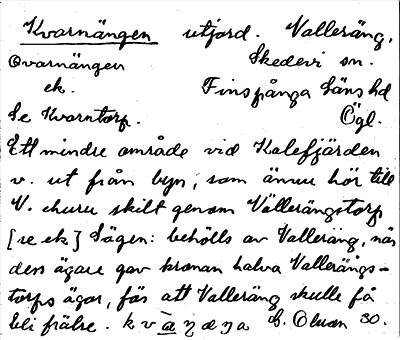 Kvarnängen utjord. Valleräng,
Qvarnängen Skedevi sn.
ek. Finspånga läns hd
Se Kvarntorp. Ögl.
Ett mindre område vid Kalefjärden
v. ut från byn, som ännu hör till
V. churu skilt genom Vallerängstorp
[se ek] Sägen: behölls av Valleräng, när
dess ägare gav kronan halva Vallerängs-
torps ägor, för att Valleräng skulle få
bli frälse. k v a ŋ æ ŋ a O. Olsson 30.